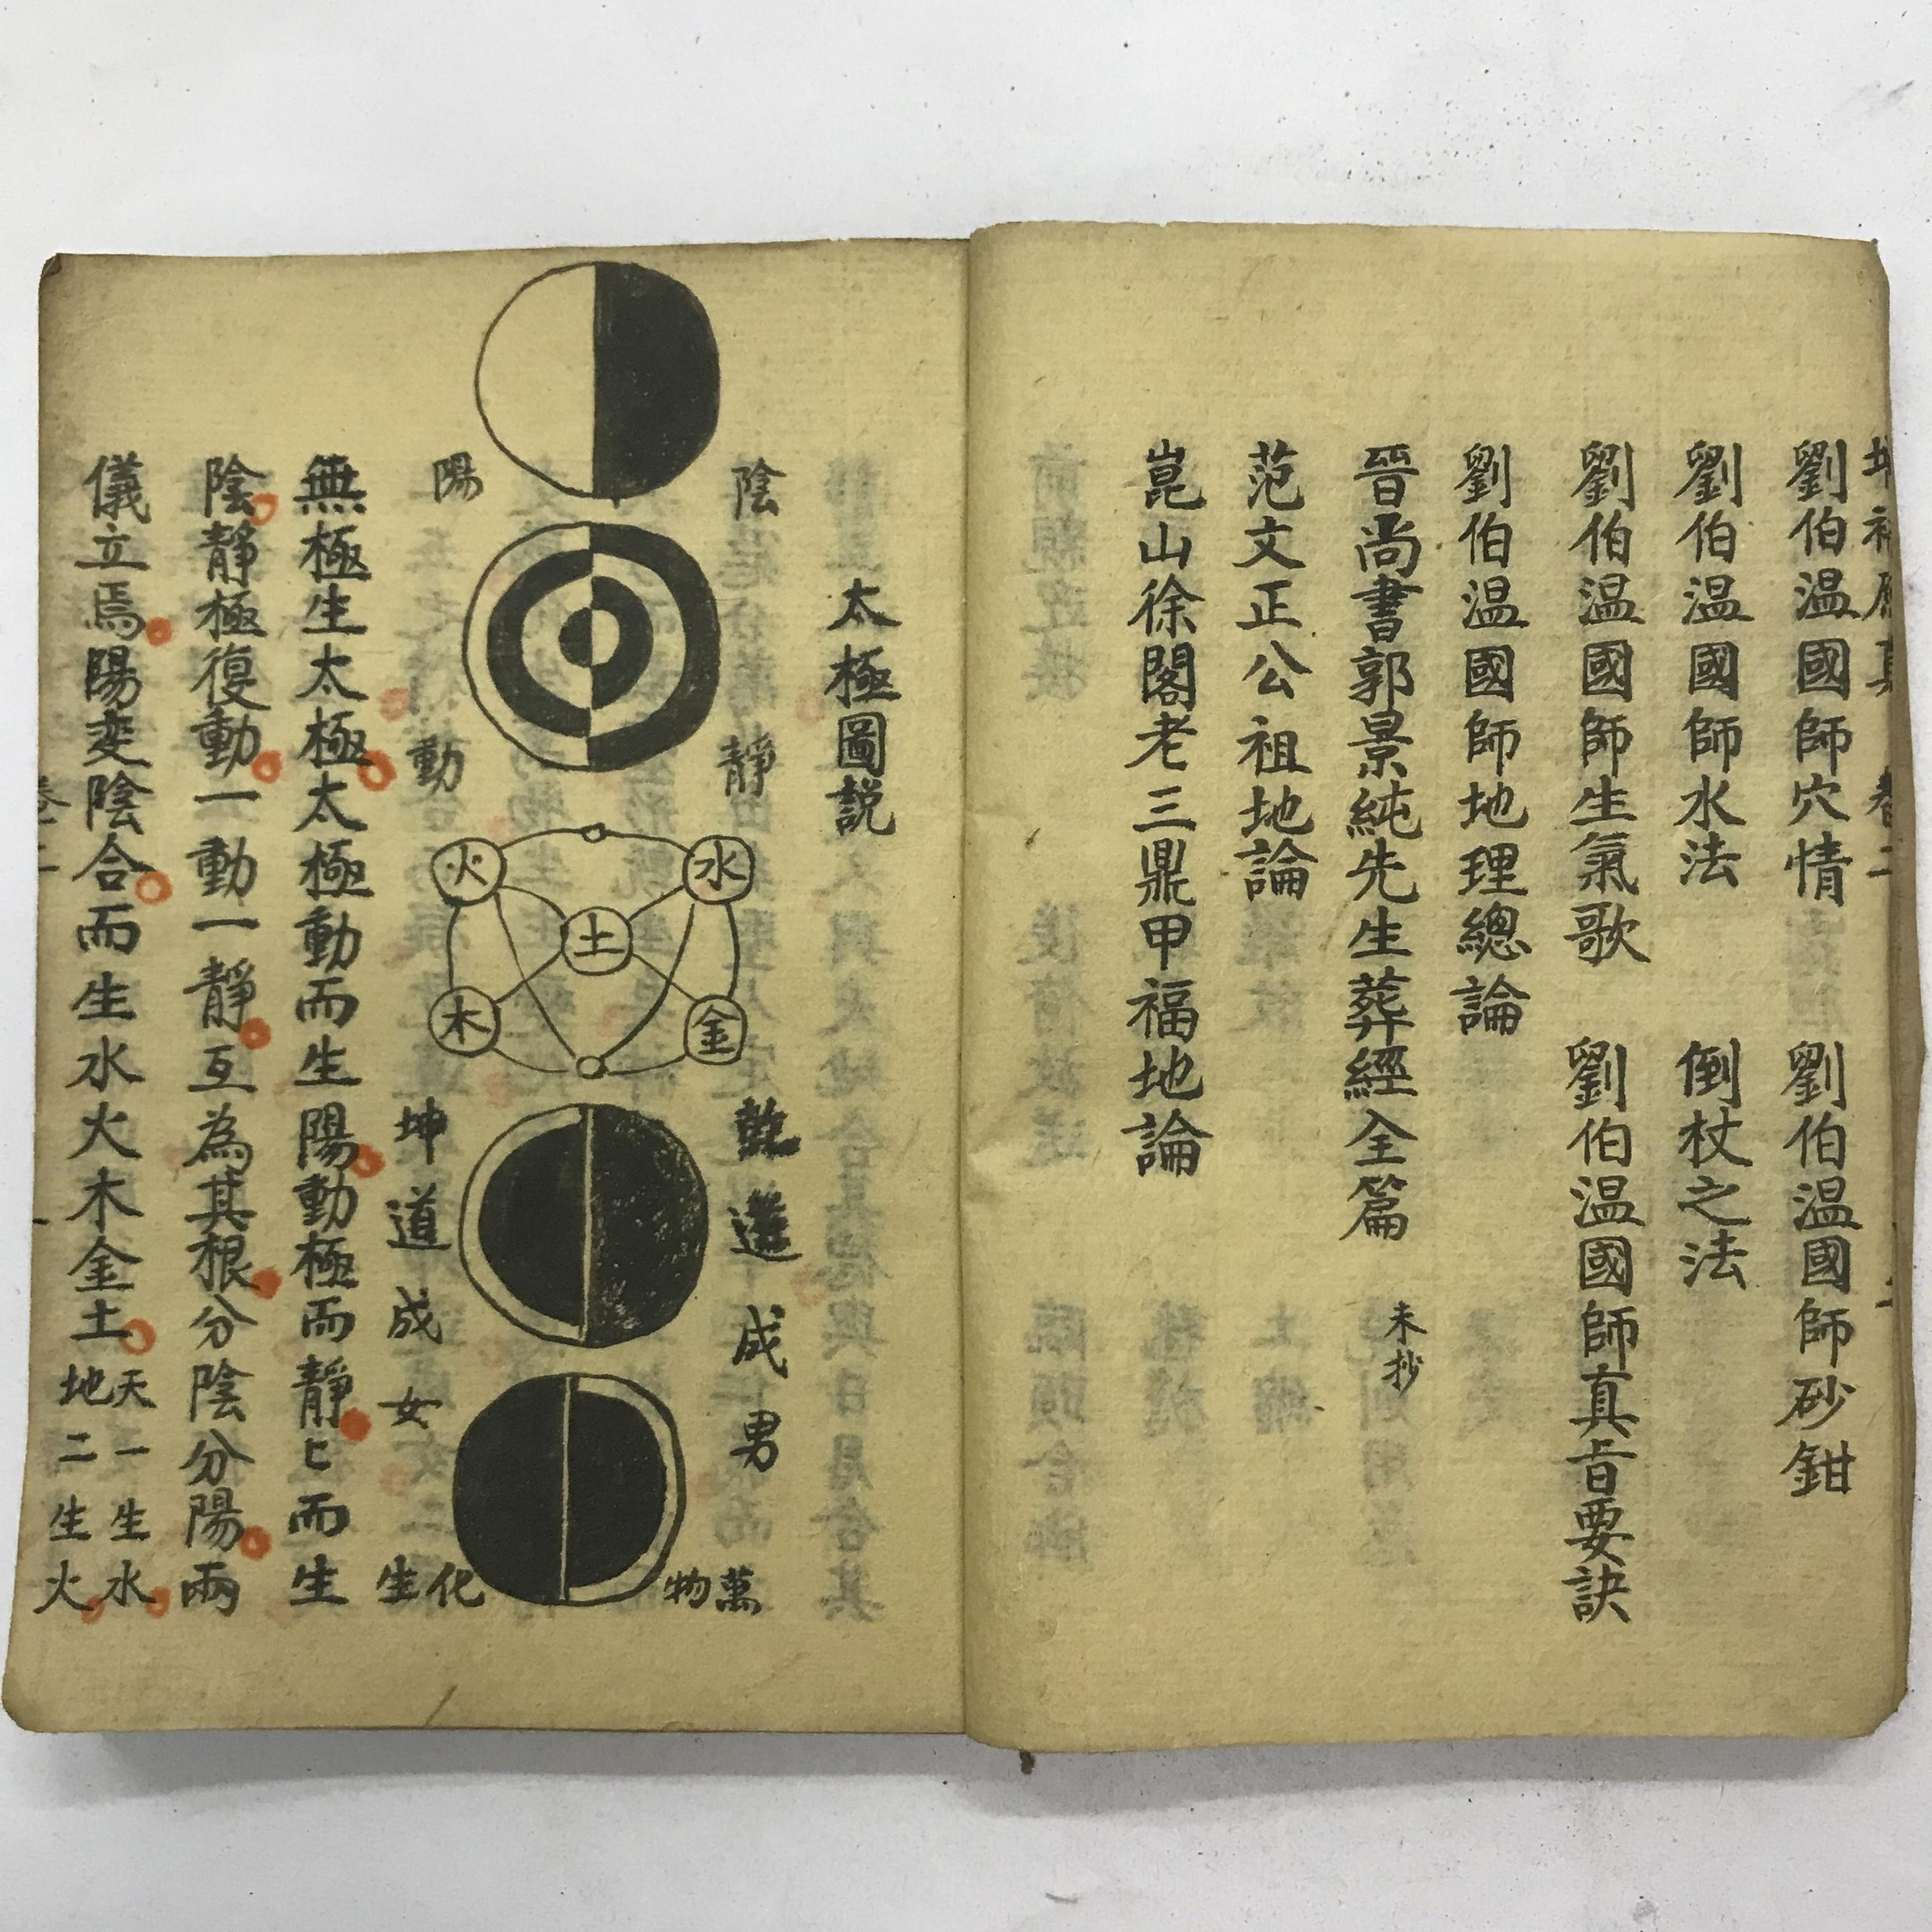 劉伯温國師穴情 劉伯温國師砂鉗
劉伯温國師水法 倒杖之法
劉伯温國師生氣歌 劉伯温國師真旨要訣
劉伯温國師地理總論
晉尚書郭景純先生葬經全篇 未抄
范文正公祖地論
崑山徐閣老三鼎甲福地論
太極圖説
陰
靜
乾道成男
萬物
水
火
土
金
木
陽
動
坤道成女
化生
無極生太極太極動而生陽動極而靜匕而生
陰靜極復動一動一靜互為其根分陰分陽兩
儀立焉陽変陰合而生水火木金土天一生水
地二生火
卷二